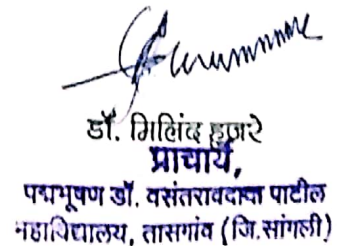 डॉ. मिलिंद हुजरे
प्राचार्य,
पद्मभूषण डॉ. वसंतरावदादा पाटील
महाविद्यालय, तासगांव (जि.सांगली)